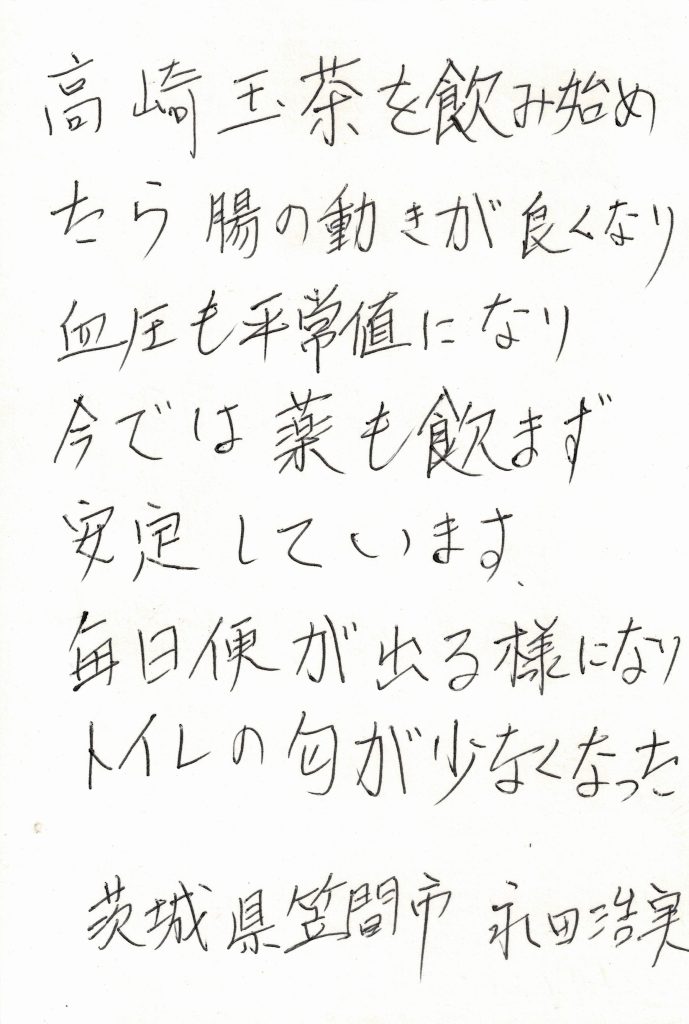 高崎玉茶を飲み始め
たら腸の動きが良くなり
血圧も平常値になり
今では薬も飲まず
安定しています.
毎日便が出る様になり
トイレの匂が少なくなった
茨城県笠間市 永田浩実